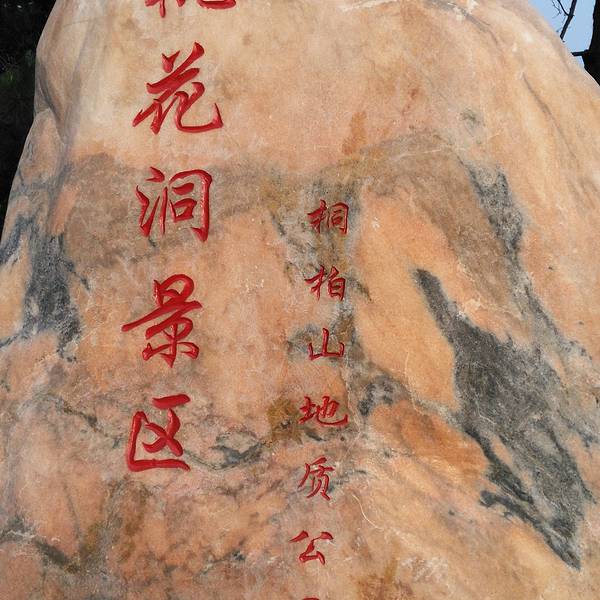 桃花洞景区
桐柏山地质公